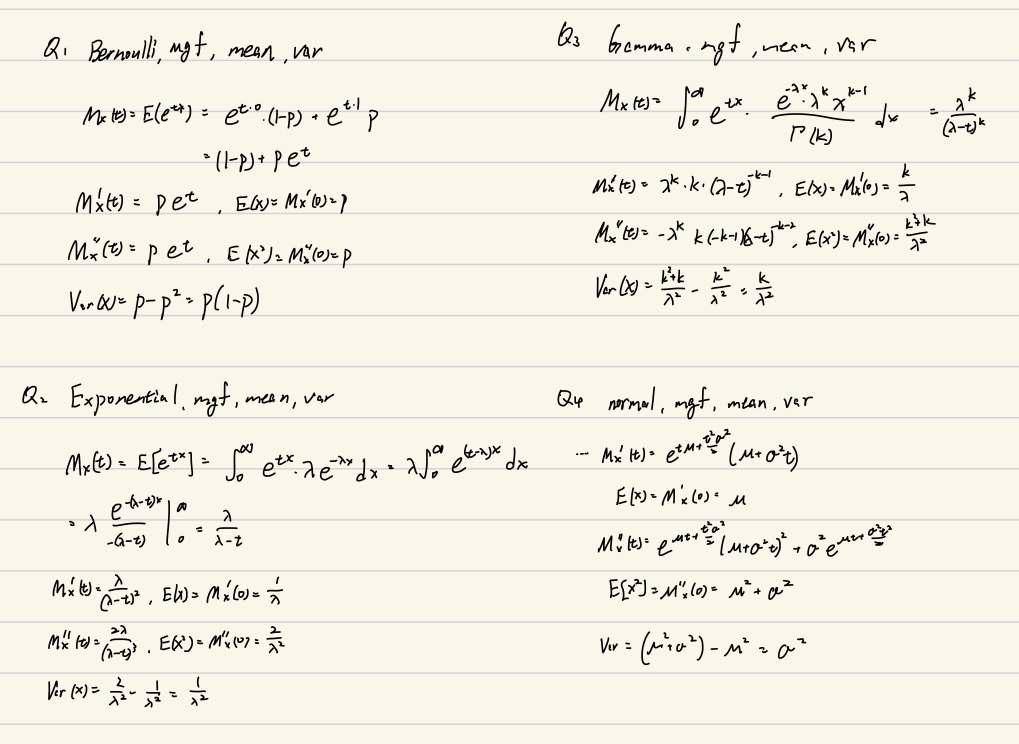 Q1 Bernoulli, mgf, mean, var
Mx(t) = E(e^tx) = e^{t·0}·(1-p) + e^{t·1} p
= (1-p) + p e^t
Mx'(t) = p e^t , E(x) = Mx'(0) = p
Mx''(t) = p e^t , E(x²) = Mx''(0) = p
Var(x) = p - p² = p(1-p)
Q2 Exponential, mgf, mean, var
Mx(t) = E[e^{tx}] = ∫₀^∞ e^{tx} · λe^{-λx} dx = λ∫₀^∞ e^{(t-λ)x} dx
= λ e^{-(λ-t)x} / -(λ-t) |₀^∞ = λ/(λ-t)
Mx'(t) = λ/(λ-t)² , E(x) = Mx'(0) = 1/λ
Mx''(t) = 2λ/(λ-t)³ , E(x²) = Mx''(0) = 2/λ²
Var(x) = 2/λ² - 1/λ² = 1/λ²
Q3 Gamma, mgf, mean, var
Mx(t) = ∫₀^∞ e^{tx} · e^{-λx}·λ^k x^{k-1} / Γ(k) dx = λ^k/(λ-t)^k
Mx'(t) = λ^k · k · (λ-t)^{-k-1} , E(x) = Mx'(0) = k/λ
Mx''(t) = -λ^k k(-k-1)(λ-t)^{-k-2} , E(x²) = Mx''(0) = (k²+k)/λ²
Var(x) = (k²+k)/λ² - k²/λ² = k/λ²
Q4 normal, mgf, mean, var
... Mx'(t) = e^{tμ + t²σ²/2} (μ+σ²t)
E(x) = Mx'(0) = μ
Mx''(t) = e^{μt + t²σ²/2} (μ+σ²t)² + σ² e^{μt + σ²t²/2}
E[x²] = Mx''(0) = μ² + σ²
Var = (μ²+σ²) - μ² = σ²